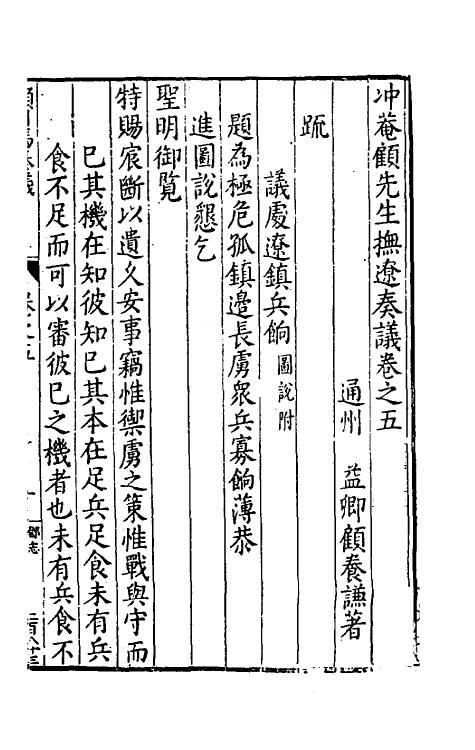 冲菴顧先生撫遼奏議卷之五
通州 益卿顧養謙著
疏
議處遼鎮兵餉 圖說附
題為極危孤鎮邊長虜衆兵寡餉薄恭
進圖說懇乞
聖明御覧
特賜宸斷以遺久安事竊惟禦虜之策惟戰與守而
已其機在知彼知已其本在足兵足食未有兵
食不足而可以審彼已之機者也未有兵食不
卷之五